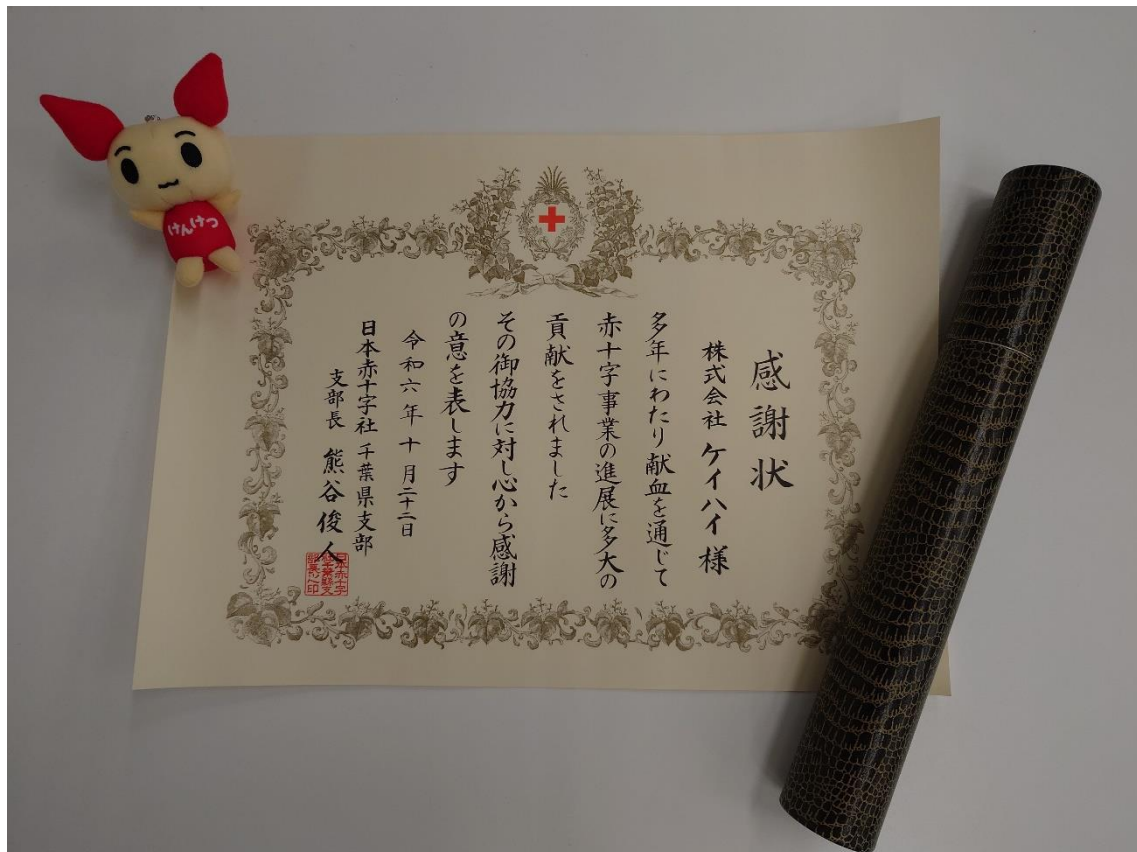 感謝状
株式会社 ケイハイ 様
多年にわたり献血を通じて
赤十字事業の進展に多大の
貢献をされました
その御協力に対し心から感謝
の意を表します
令和六年十月二十二日
日本赤十字社 千葉県支部
支部長 熊谷俊人
けんけつ